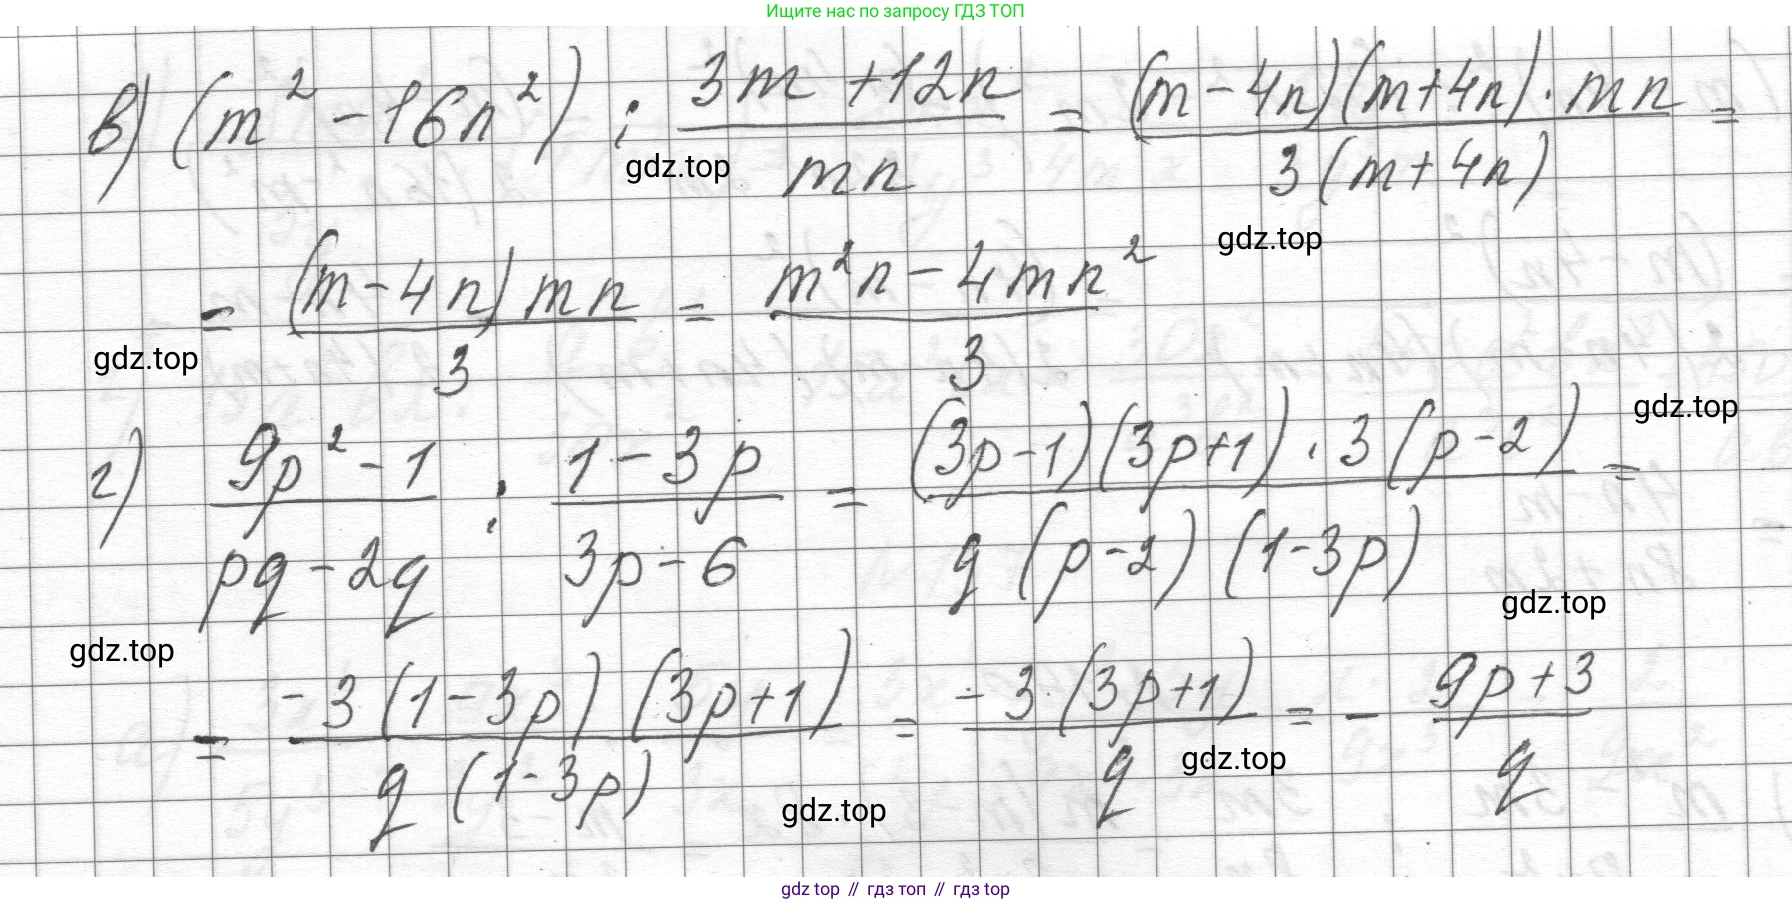 Ищите нас по запросу ГДЗ ТОП
в) (m² - 16n²) : (3m + 12n)/(mn) = ((m - 4n)(m + 4n) · mn)/(3(m + 4n)) =
gdz.top
gdz.top
= ((m - 4n) mn)/3 = (m²n - 4mn²)/3
gdz.top
gdz.top
г) (9p² - 1)/(pq - 2q) : (1 - 3p)/(3p - 6) = ((3p - 1)(3p + 1) · 3(p - 2))/(q(p - 2)(1 - 3p)) =
gdz.top
gdz.top
= (-3(1 - 3p)(3p + 1))/(q(1 - 3p)) = (-3(3p + 1))/q = - (9p + 3)/q
gdz.top
gdz.top
gdz top // гдз топ // гдз top